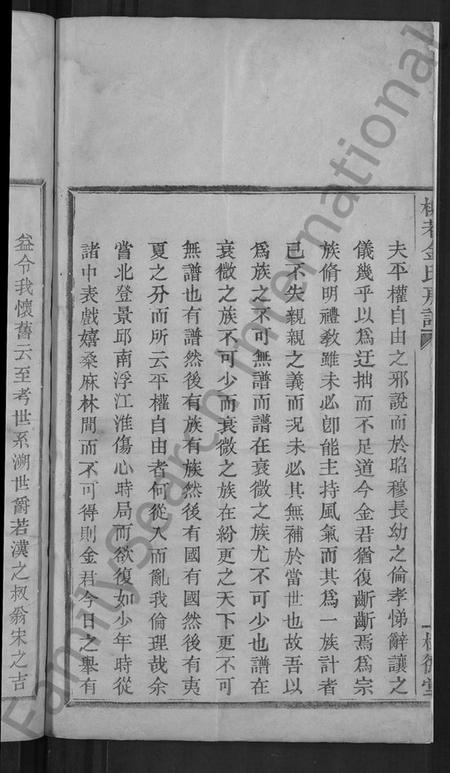 夫平權自由之邪說而於昭穆長幼之倫孝悌辭讓之
儀幾乎以爲迂拙而不足道今金君猶復斷斷焉爲宗
族脩明禮敎雖未必卽能主持風氣而其爲一族計者
已不失親親之義而況未必其無補於當世也故吾以
爲族之不可無譜而譜在衰微之族尤不可少也譜在
衰微之族不可少而衰微之族在紛更之天下更不可
無譜也有譜然後有族有族然後有國有國然後有夷
夏之分而所云平權自由者何從入而亂我倫理哉余
嘗北登景邱南浮江淮傷心時局而欲復如少年時從
諸中表戲嬉桑麻林間而不可得則金君今日之舉有
益令我懷舊云至考世系溯世爵若漢之叔翁宋之吉
金氏房譜
FamilySearch International